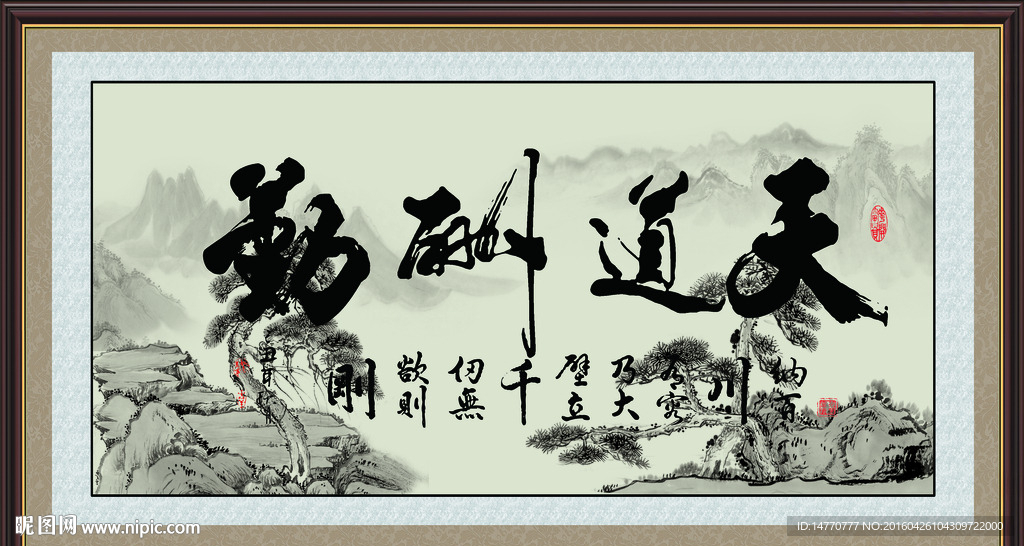 天道酬勤
納百
川
有容
乃大
壁立
千
仞無
欲則
剛
昵图网 www.nipic.com
ID:14770777 NO:20160426104309722000